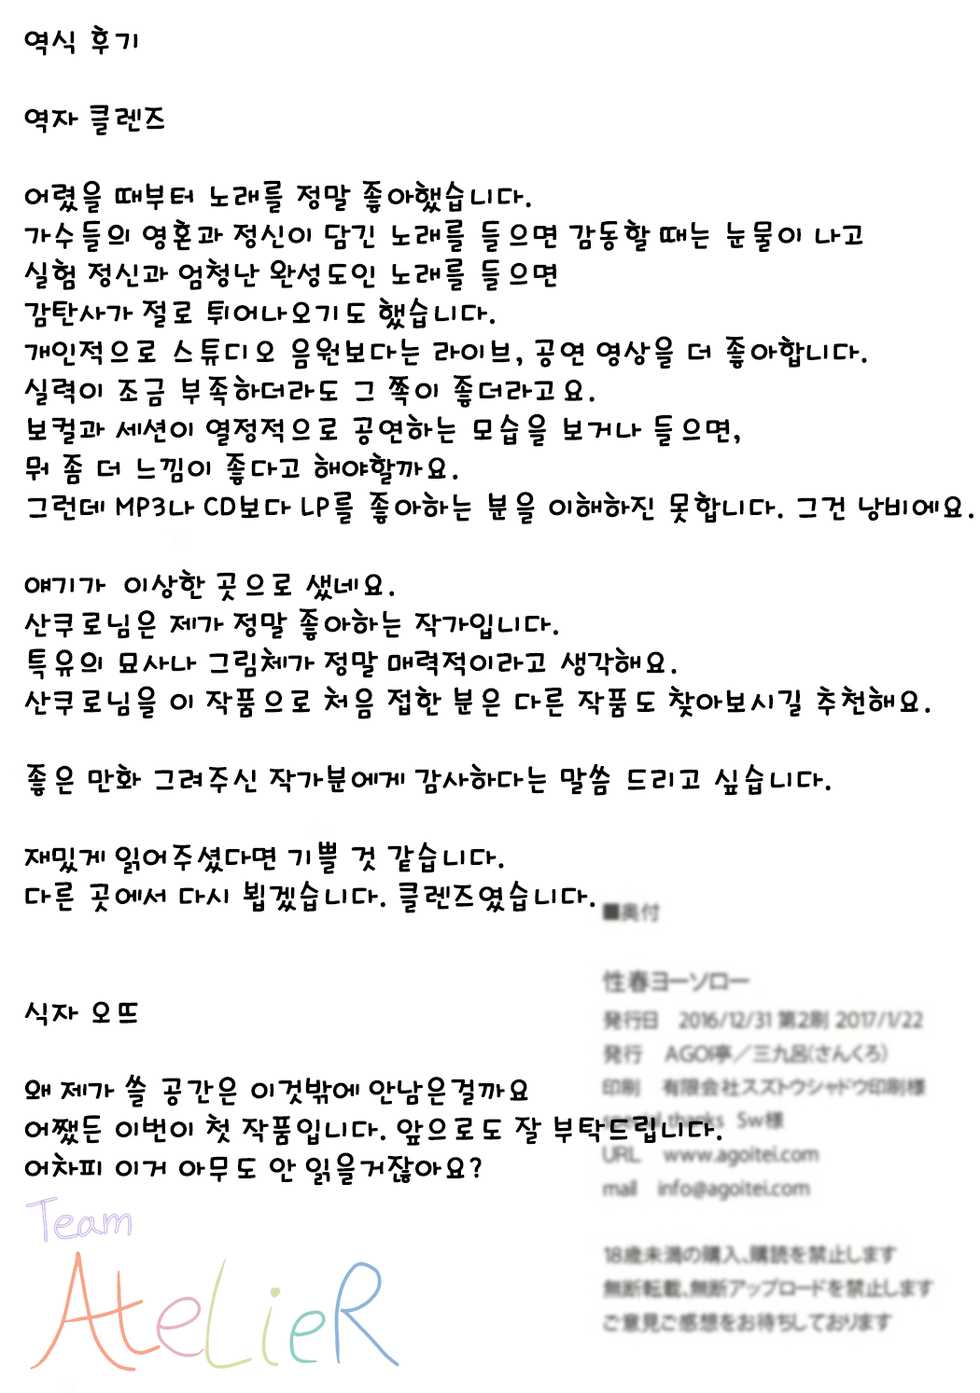 역식 후기
역자 클렌즈
어렸을 때부터 노래를 정말 좋아했습니다.
가수들의 영혼과 정신이 담긴 노래를 들으면 감동할 때는 눈물이 나고
실험 정신과 엄청난 완성도인 노래를 들으면
감탄사가 절로 튀어나오기도 했습니다.
개인적으로 스튜디오 음원보다는 라이브, 공연 영상을 더 좋아합니다.
실력이 조금 부족하더라도 그 쪽이 좋더라고요.
보컬과 세션이 열정적으로 공연하는 모습을 보거나 들으면,
뭐 좀 더 느낌이 좋다고 해야할까요.
그런데 MP3나 CD보다 LP를 좋아하는 분을 이해하진 못합니다. 그건 낭비에요.
얘기가 이상한 곳으로 샜네요.
산쿠로님은 제가 정말 좋아하는 작가입니다.
특유의 묘사나 그림체가 정말 매력적이라고 생각해요.
산쿠로님을 이 작품으로 처음 접한 분은 다른 작품도 찾아보시길 추천해요.
좋은 만화 그려주신 작가분에게 감사하다는 말씀 드리고 싶습니다.
재밌게 읽어주셨다면 기쁠 것 같습니다.
다른 곳에서 다시 뵙겠습니다. 클렌즈였습니다.
식자 오뜨
왜 제가 쓸 공간은 이것밖에 안남은걸까요
어쨌든 이번이 첫 작품입니다. 앞으로도 잘 부탁드립니다.
어차피 이거 아무도 안 읽을거잖아요?
Team
AtelieR
■奥付
性春ヨーソロー
発行日 2016/12/31 第2刷 2017/1/22
発行 AGOI亭／三九呂(さんくろ)
印刷 有限会社スズトウシャドウ印刷様
special thanks Sw様
URL www.agoitei.com
mail info@agoitei.com
18歳未満の購入、購読を禁止します
無断転載、無断アップロードを禁止します
ご意見ご感想をお待ちしております